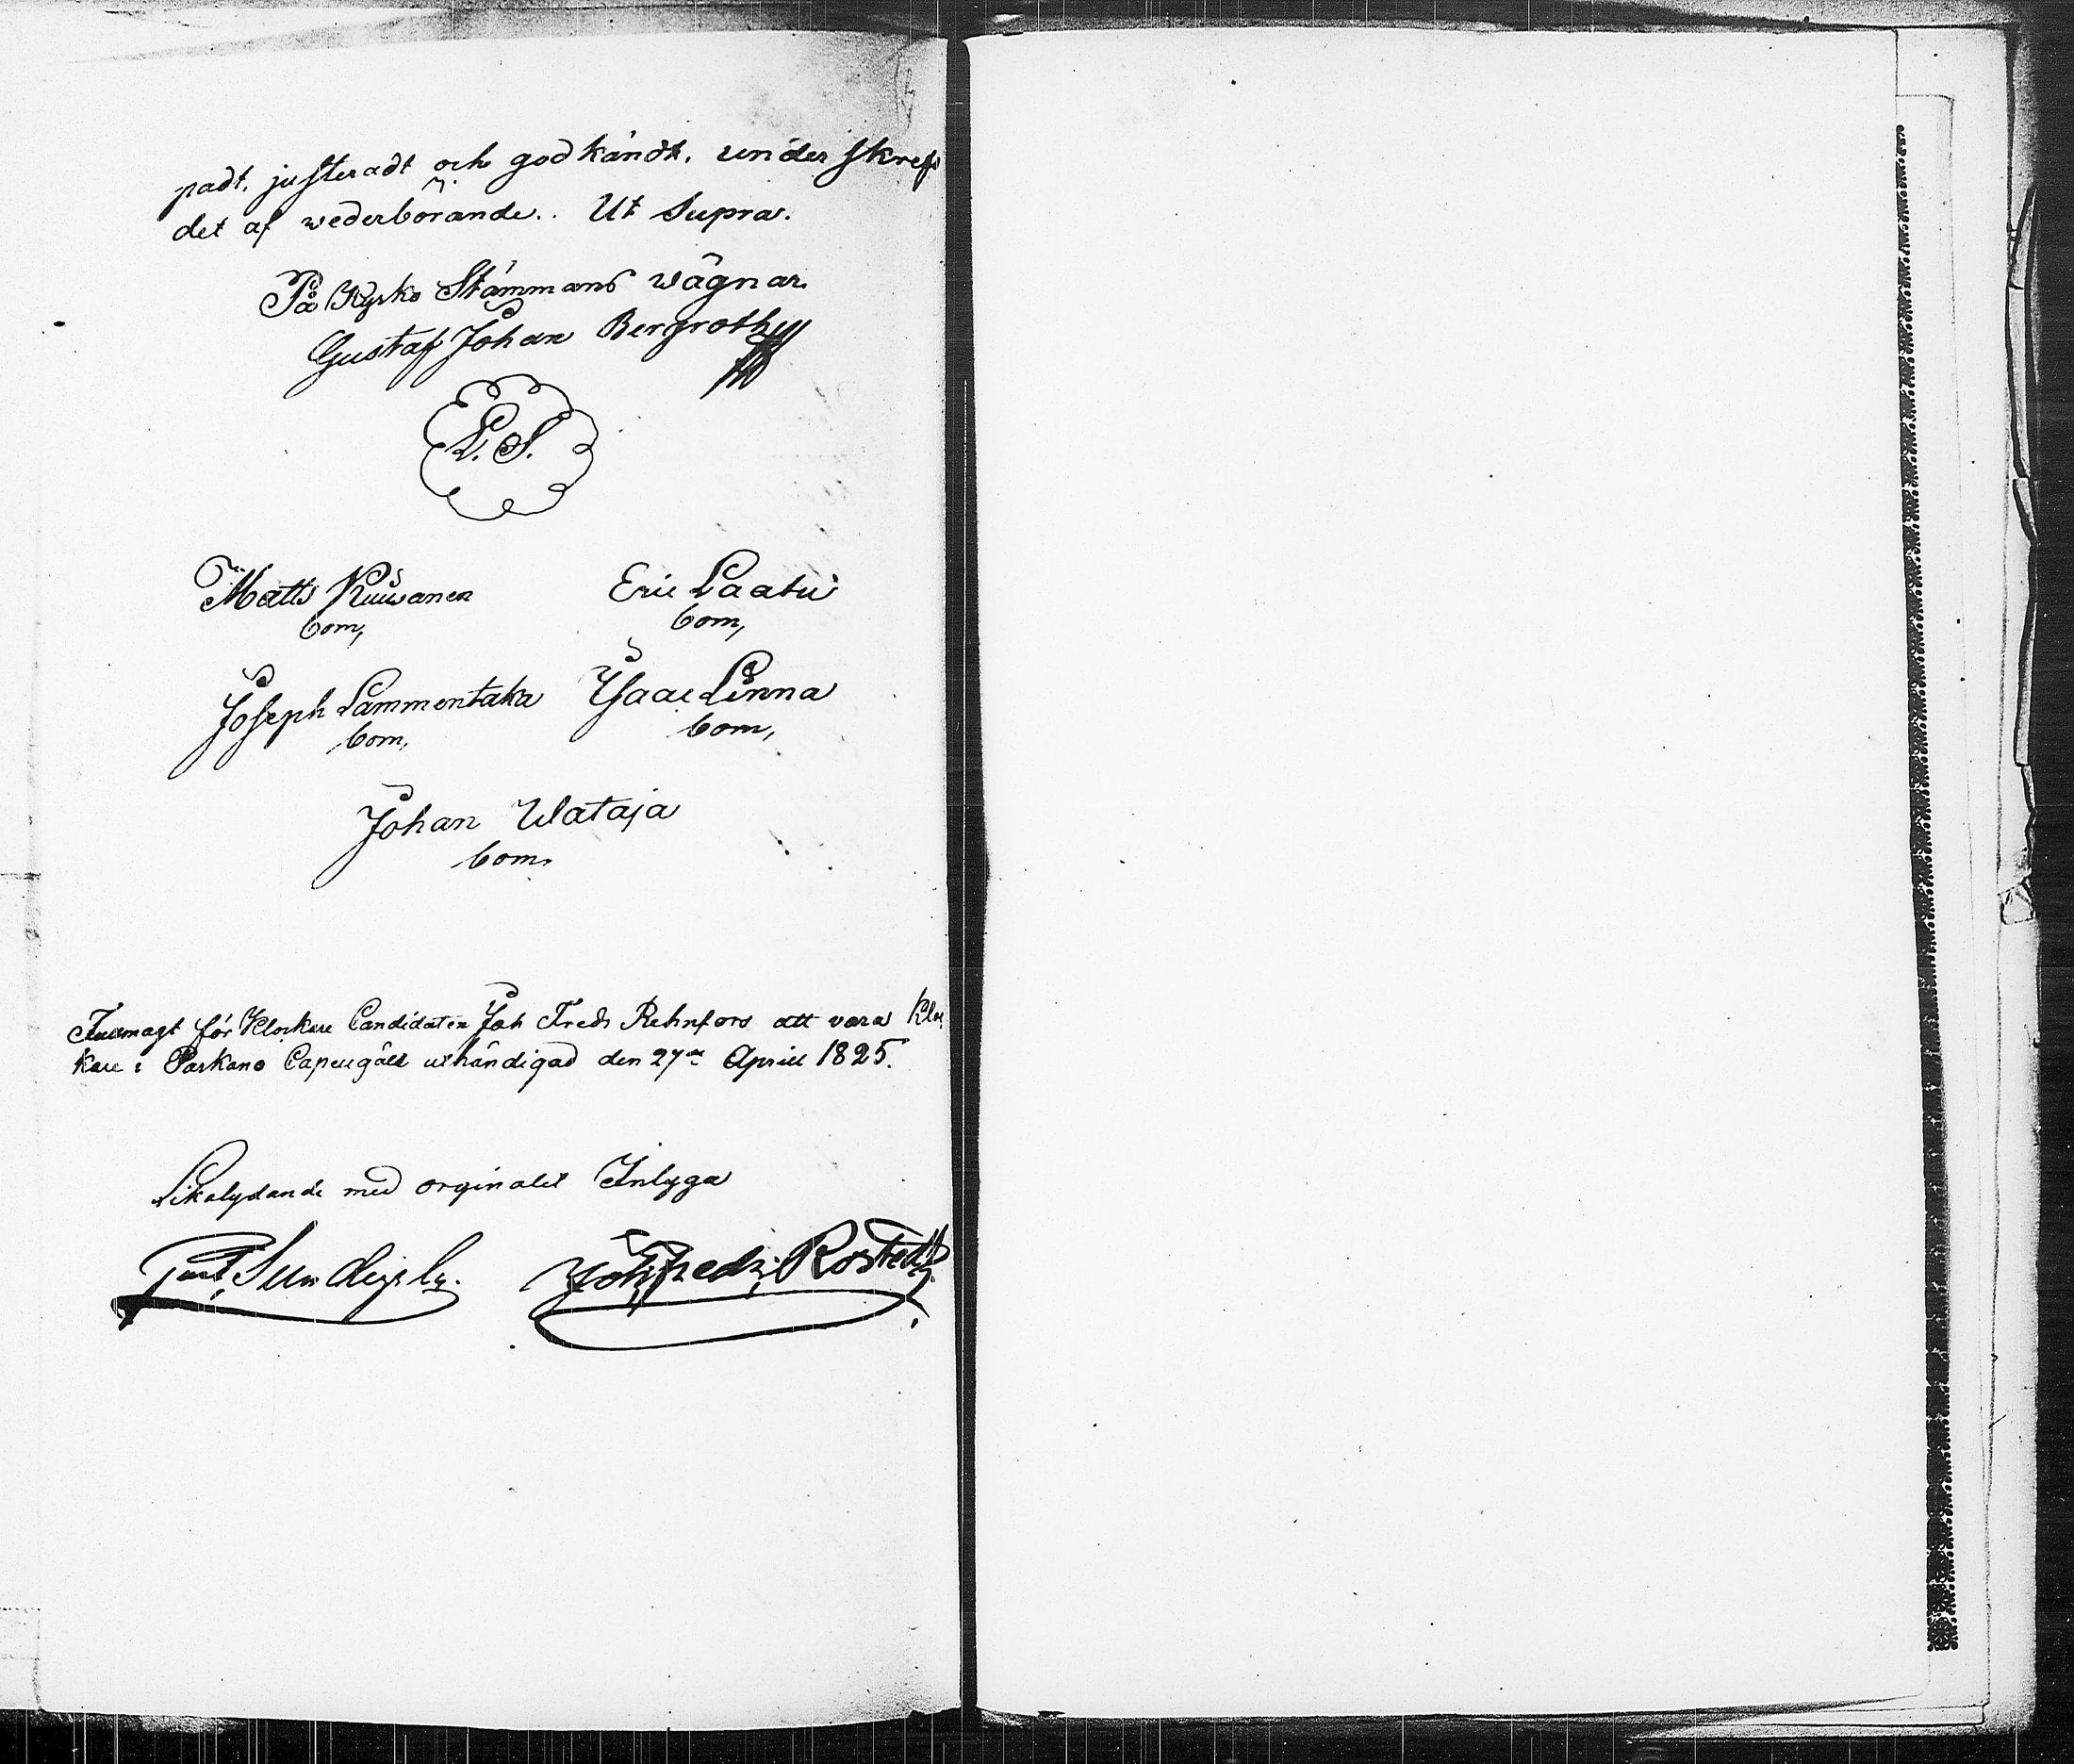 padt, justeradt och godkändt, underskref
det af wederbörande.. Ut Supra.
På Kyrko Stämmans wägnar
Gustaf Johan Bergroth
L. S.
Matts Kuiwanen Eric Laatu
bom, bom,
Joseph Lammentaka Isaac Linna
bom, bom,
Johan Wataja
bom.
för Klockare Candidaten Joh Fredr Rehnfors att vara Kloc
kare i Parkano Capellgäld uthändigad den 27de Aprill 1825.
Likalydande med orginalet Intyga
Joh. Fredr. Rostedt